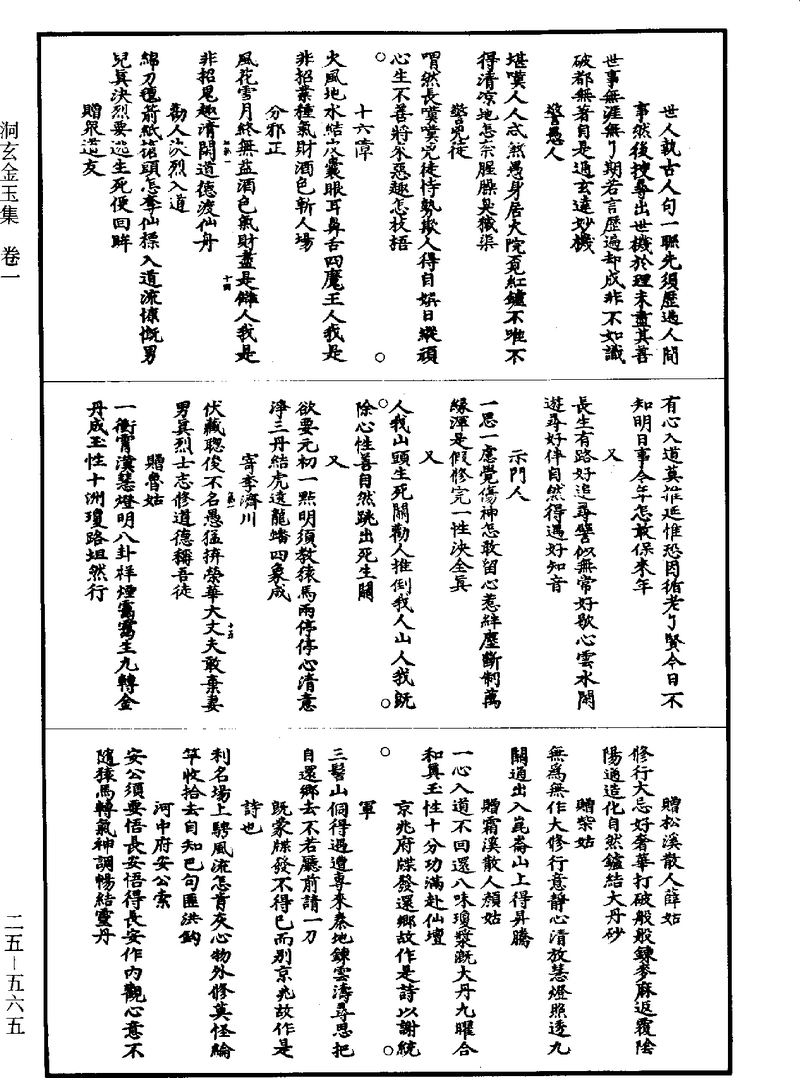 洞玄金玉集　卷一
世人執古人句一聯先須歷過人間
事然後搜尋出世機於理未盡其善
世事無涯無了期若言歷過却成非不如識
破都無著自是通玄達妙機
警愚人
堪嘆人人忒煞愚身居大院覓紅鑪不唯不
得清涼地怎奈腥臊臭穢渠
警兇徒
喟然長嘆嘆兇徒恃勢欺人得自娛日縱頑
心生不善將來惡趣怎枝梧
十六障
火風地水結皮囊眼耳鼻舌四魔王人我是
非招業種氣財酒色斬人場
分邪正
風花雪月終無益酒色氣財盡是讎人我是
非招鬼趣清閑道德渡仙舟
勸人決烈入道
綿刀氊箭紙搶頭怎奪仙標入道流慷慨男
兒真決烈要逃生死便回眸
贈眾道友
十四
有心入道莫推延惟恐因循老了賢今日不
知明日事今年怎敢保來年
又
長生有路好追尋譬似無常好歇心雲水閑
遊尋好伴自然得遇好知音
示門人
一思一慮覺傷神怎敢留心惹絆塵斷制萬
緣渾是假修完一性決全真
又
人我山頭生死關勸人推倒我人山人我既
除心性善自然跳出死生關
又
欲要元初一點明須教猿馬兩停停心清意
淨三丹結虎遶龍蟠四象成
寄李濟川
伏藏聰俊不名愚猛拚榮華大丈夫敢棄妻
男真烈士志修道德稱吾徒
贈魯姑
一衝霄漢慧燈明八卦祥煙靄靄生九轉金
丹成玉性十洲瓊路坦然行
十五
贈松溪散人薛姑
修行大忌好奢華打破般般鍊麥麻返覆陰
陽通造化自然鑪結大丹砂
贈柴姑
無為無作大修行意靜心清放慧燈照透九
關通出入崑崙山上得昇騰
贈霜溪散人顏姑
一心入道不回還八味瓊漿溉大丹九曜合
和真玉性十分功滿赴仙壇
京兆府牒發還鄉故作是詩以謝統
軍
三髻山侗得遇遭專來秦地鍊雲濤尋思把
自還鄉去不若廳前請一刀
既蒙牒發不得已而別京兆故作是
詩也
利名場上騁風流怎肯灰心物外修莫怪綸
竿收拾去自知巴句匪洪鉤
河中府安公索
安公須要悟長安悟得長安作內觀心意不
隨猿馬轉氣神調暢結靈丹
二五—五六五